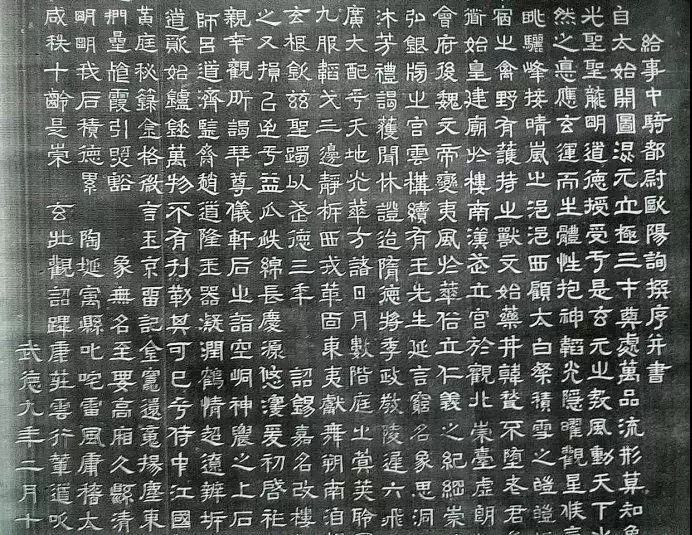 給事中騎都尉歐陽詢撰序并書
自太始開圖混元立極三才奠處萬品流形莫知象
光聖聖龍明道德授受于是玄元之敎風動天下
然之悳應玄運而生體性抱神韜光隱曜觀星候
眺驪峰接晴嵐之浥浥西顧太白祭積雪之皚皚
宿之禽野有護持之獸文始藥井韓不墮老君
衢始皇建廟於樓南漢武立宮於觀北崇臺虛朗
會府後魏文帝變夷風於華俗立仁義之紀綱崇
弘銀牓之宮雲構續有王先生延言窮名象思洞
沐芳禮謁獲聞休證迨隋德將季政敎陵遲六飛
廣大配乎天地光華方諸日月數階庭之蓂莢聆
九服韜戈三邊靜柝西戎革面東夷獻舞朔南洎
玄根欽茲聖躅以武德三年 詔錫嘉名改樓
之又損以至于益瓜瓞綿長慶源悠濬爰初啓祚
親幸觀所謁拜尊儀軒后之詣空峒神農之上石
師呂道濟監齋趙道隆玉器凝潤鶴情超遼辨析
道源始鑪錘萬物不有刊勒其可已乎侍中江國
黃庭秘籙金格微言玉京留記金竈還竟揚塵東
捫壘霞引谿 象無名至要高廂久縣清
明明我后積德累 陶埏寓縣叱咤雷風庸稽太
咸秩十齡是崇 玄壯觀詔蹕康莊雲行輦道吹
武德九年二月十